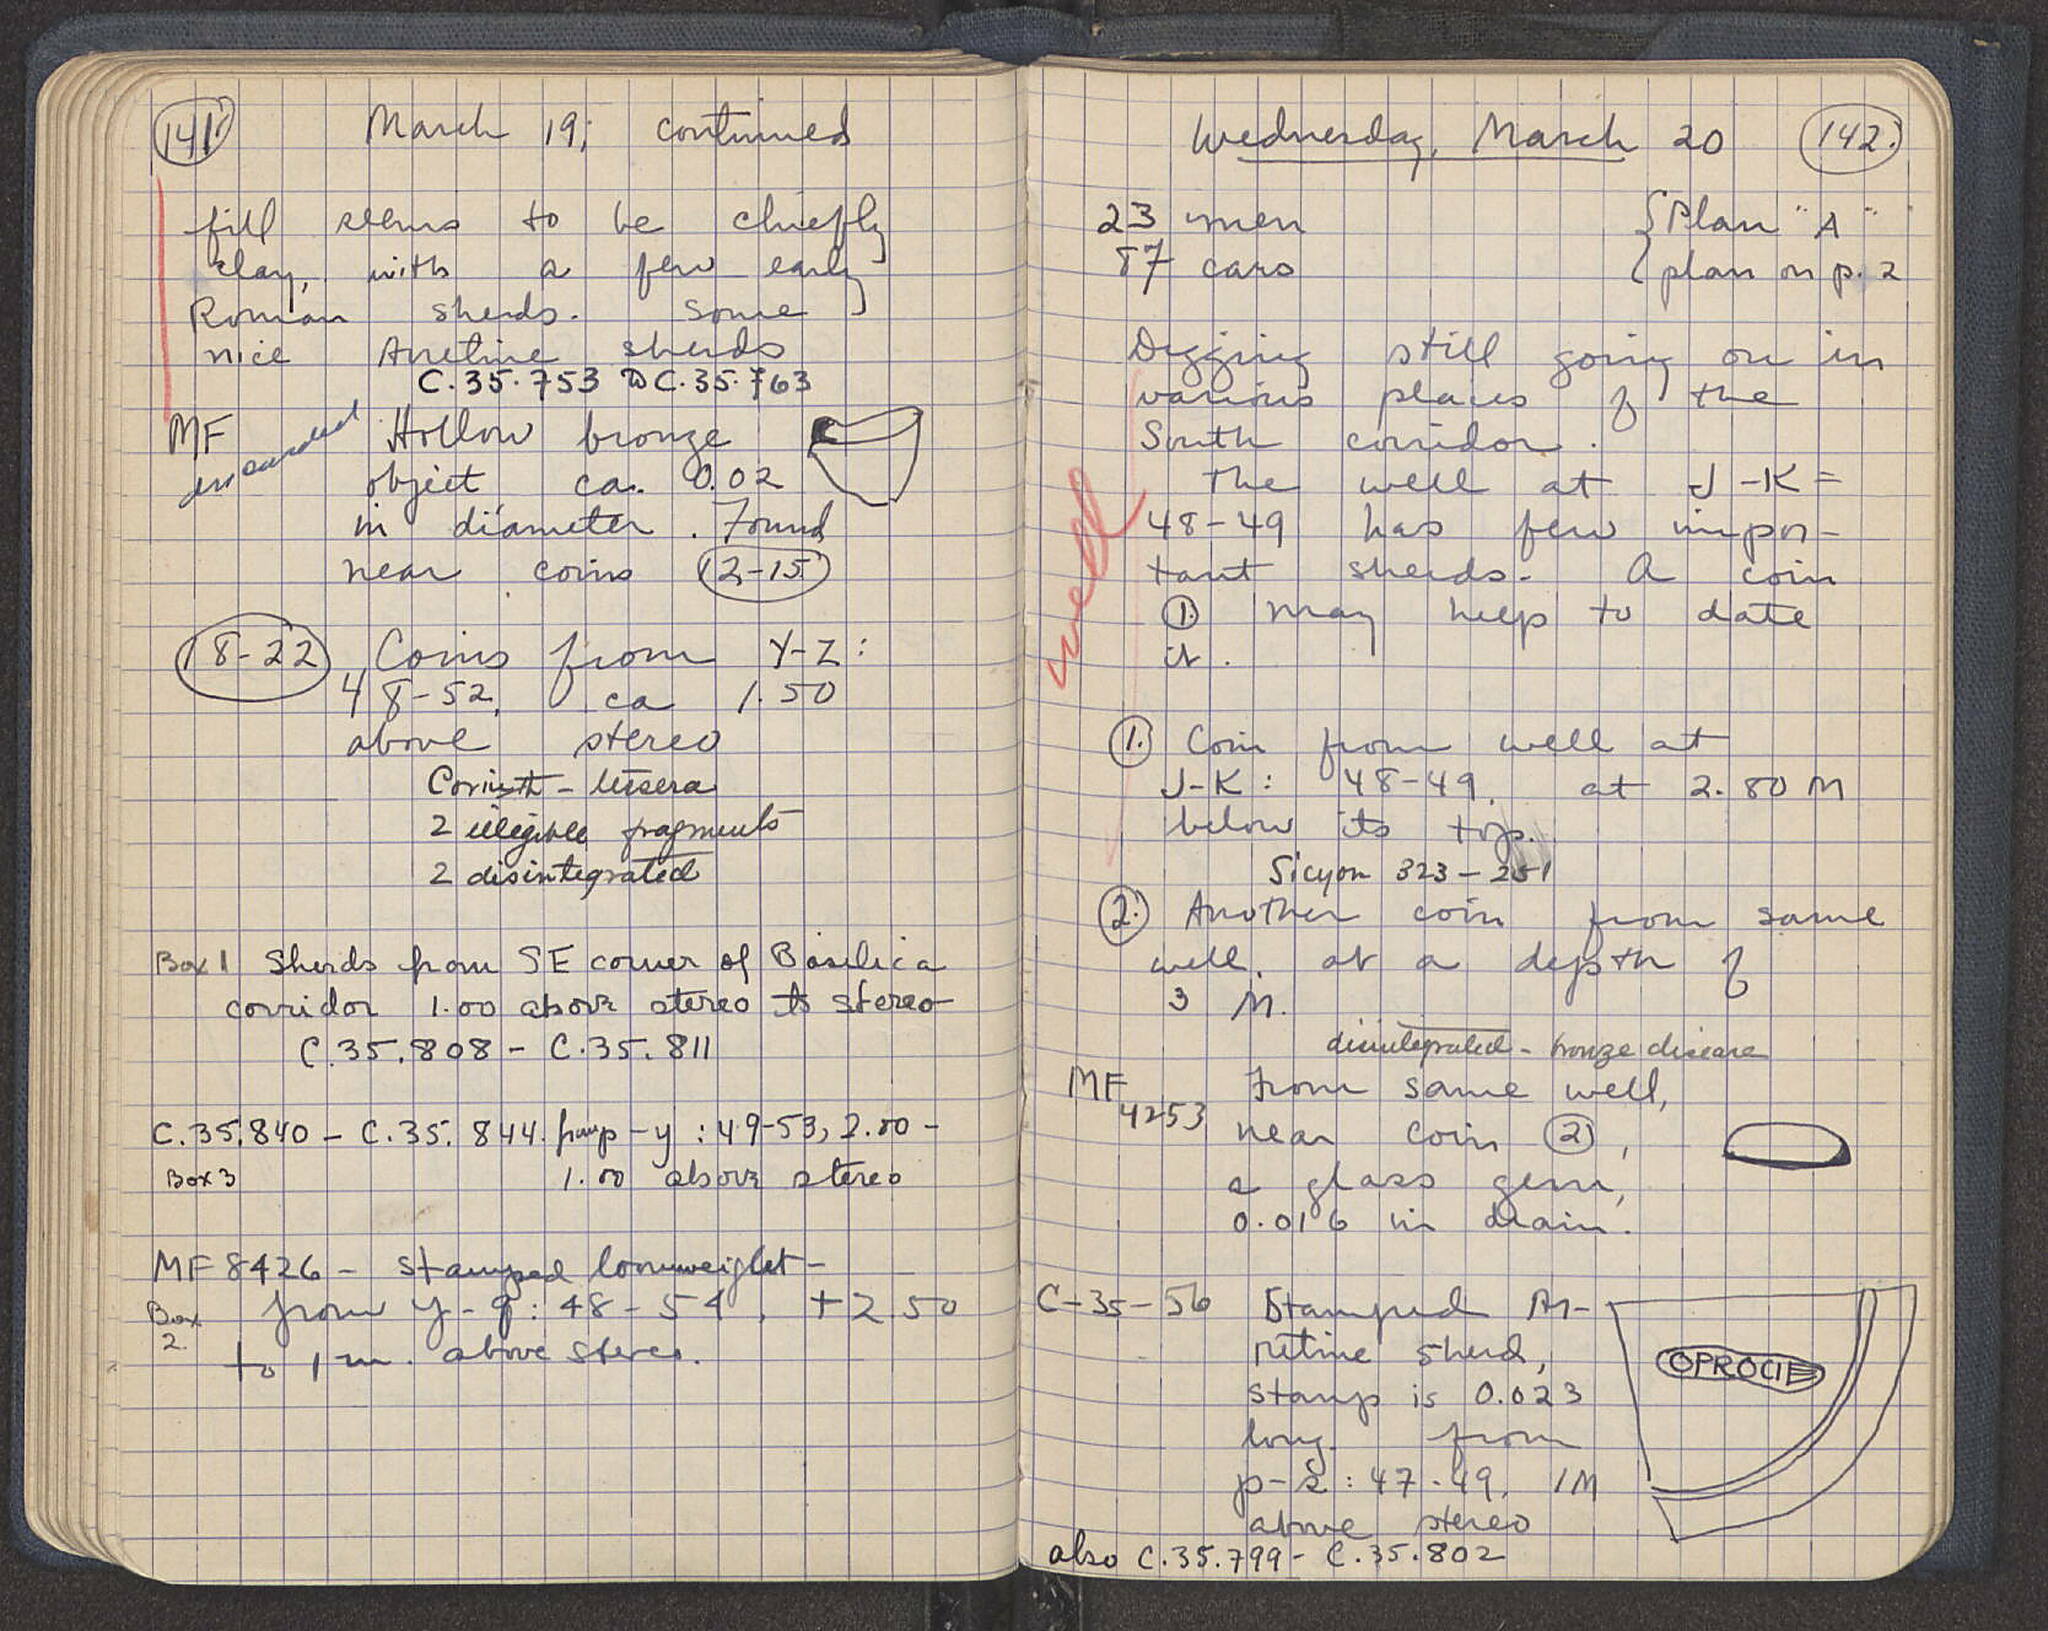 141.
March 19, continued
fill seems to be chiefly
clay, with a few early
Roman sherds. Some
nice Arretine sherds
C.35.753 to C.35.763
MF
discarded
Hollow bronze
object ca. 0.02
in diameter. Found
near coins 12-15
18-22 Coins from Y-Z:
48-52, ca 1.50
above stereo
Corinth - tessera
2 illegible fragments
2 disintegrated
Box 1 Sherds from SE corner of Basilica
corridor 1.00 above stereo to stereo
C.35.808 - C.35.811
C.35.840 - C.35.844. from p-y: 49-53, 2.00-
Box 3 1.00 above stereo
MF 8426 - stamped loomweight -
Box 2. from y-q: 48-54, +2.50
to 1 m. above stereo.
Wednesday, March 20 142.
23 men
87 cars
{Plan "A"
{plan on p. 2
Digging still going on in
various places of the
South corridor.
well
The well at J-K=
48-49 has few impor-
tant sherds. A coin
1. may help to date
it.
1. Coin from well at
J-K: 48-49, at 2.80 M
below its top.
Sicyon 323-251
2. Another coin from same
well, at a depth of
3 M.
disintegrated - bronze disease
MF 4253 From same well,
near coin 2,
a glass gem,
0.016 in diam.
C-35-56 Stamped Ar-
retine sherd,
stamp is 0.023
long. from
p-s: 47-49, 1M
above stereo
OPROCIE
also C.35.799 - C.35.802